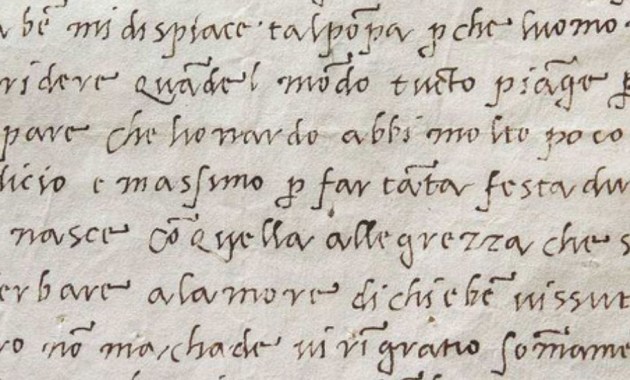 bē mi dispiace tal pōpa p̱che luomo
ridere quāde l mōdo tucto piāge
pare che lionardo abbi molto poco
dicio e massimo p̱ far tāta festa du
nasce cō quella allegrezza che s
erbare a la morte di chi e bē vissut
ro nō machade vi rīgratio somame